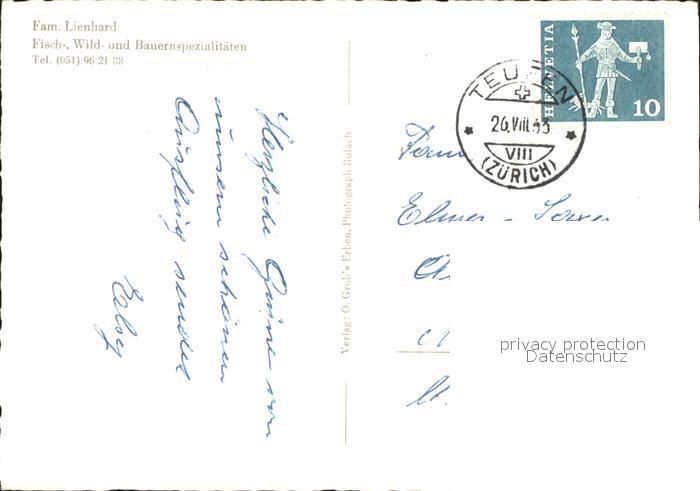 Fam. Lienhard
Fisch-, Wild- und Bauernspezialitäten
Tel. (051) 96 21 88
Herzliche Grüsse von
unserm schönen
Ausflug sendet
Elsy
Verlag: O. Groß's Erben, Photograph Bülach
HELVETIA
10
TEUFEN
26.VIII.63
VIII
(ZÜRICH)
Fam
Elmer -
privacy protection
Datenschutz